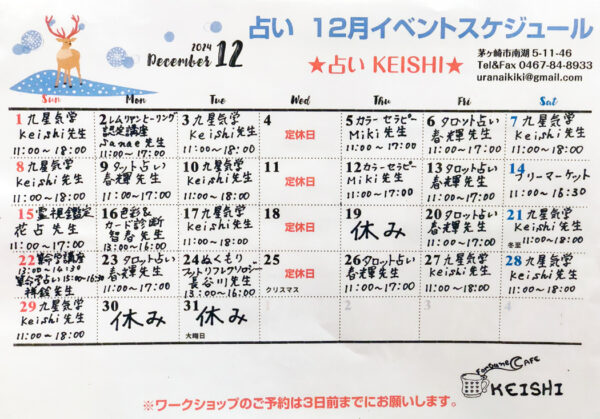 占い 12月イベントスケジュール
2024
December 12
★占い KEISHI★
茅ヶ崎市南湖 5-11-46
Tel&Fax 0467-84-8933
uranaikiki@gmail.com
Sun Mon Tue Wed Thu Fri Sat
1 九星気学
Keishi先生
11:00〜18:00
2 レムリアンヒーリング
認定講座
Sanae先生
11:00〜17:00
3 九星気学
Keishi先生
11:00〜18:00
4
定休日
5 カラーセラピー
Miki先生
11:00〜17:00
6 タロット占い
春輝先生
11:00〜17:00
7 九星気学
Keishi先生
11:00〜18:00
8 九星気学
Keishi先生
11:00〜18:00
9 タロット占い
春輝先生
11:00〜17:00
10 九星気学
Keishi先生
11:00〜18:00
11
定休日
12 カラーセラピー
Miki先生
11:00〜17:00
13 タロット占い
春輝先生
11:00〜17:00
14
フリーマーケット
11:00〜16:30
15 霊視鑑定
花占先生
11:00〜17:00
16 色彩&
カード診断
智春先生
13:00〜16:00
17 九星気学
Keishi先生
11:00〜18:00
18
定休日
19
休み
20 タロット占い
春輝先生
11:00〜17:00
21 九星気学
Keishi先生
冬至 11:00〜18:00
22 算命学講座
13:00〜14:30
算命学占い 15:00〜16:30
先生
23 タロット占い
春輝先生
11:00〜17:00
24 ぬくもり
フットリフレクソロジー
長谷川先生
13:00〜16:00
25
定休日
クリスマス
26 タロット占い
春輝先生
11:00〜17:00
27 九星気学
Keishi先生
11:00〜18:00
28 九星気学
Keishi先生
11:00〜18:00
29 九星気学
Keishi先生
11:00〜18:00
30
休み
31
休み
大晦日
1 2 3 4
Fortune CAFE
KEISHI
※ワークショップのご予約は3日前までにお願いします。